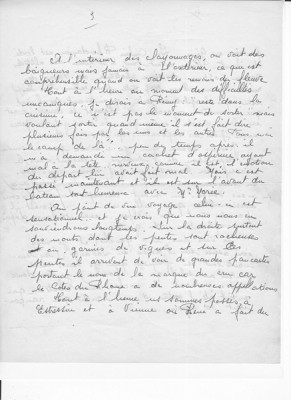 3
A l'intérieur des claquonnages, on voit des
baigneurs mais jamais à l'extérieur, ce qui est
compréhensible quand on voit les remous du fleuve
Tout à l'heure au moment des difficultés
mécaniques, je disais à René reste dans la
cuisine, ce n'est pas le moment de sortir mais
voulant sortir quand même il s'est fait dire
plusieurs fois par les uns et les autres
le camp de là peu de temps après il
m'a demandé un cachet d'aspirine ayant
mal à la tête, nerveux comme il est,
du départ lui avait fait mal. Mais c'est
passé maintenant et il est sur l'avant du
bateau tout heureux avec Mr
Au point de vue voyage, celui-ci est
sensationnel et je crois que nous nous en
souviendrons longtemps. Sur la droite
des monts dont les pentes sont rocheuses
et garnies de vignes et sur les
pentes il arrivent de voir de grandes pancartes
portant le nom de la marque du cru, car
les Côtes du Rhône a de nombreuses appellations
Tout à l'heure ns sommes passés à
Estressin et à Vienne où René a fait du